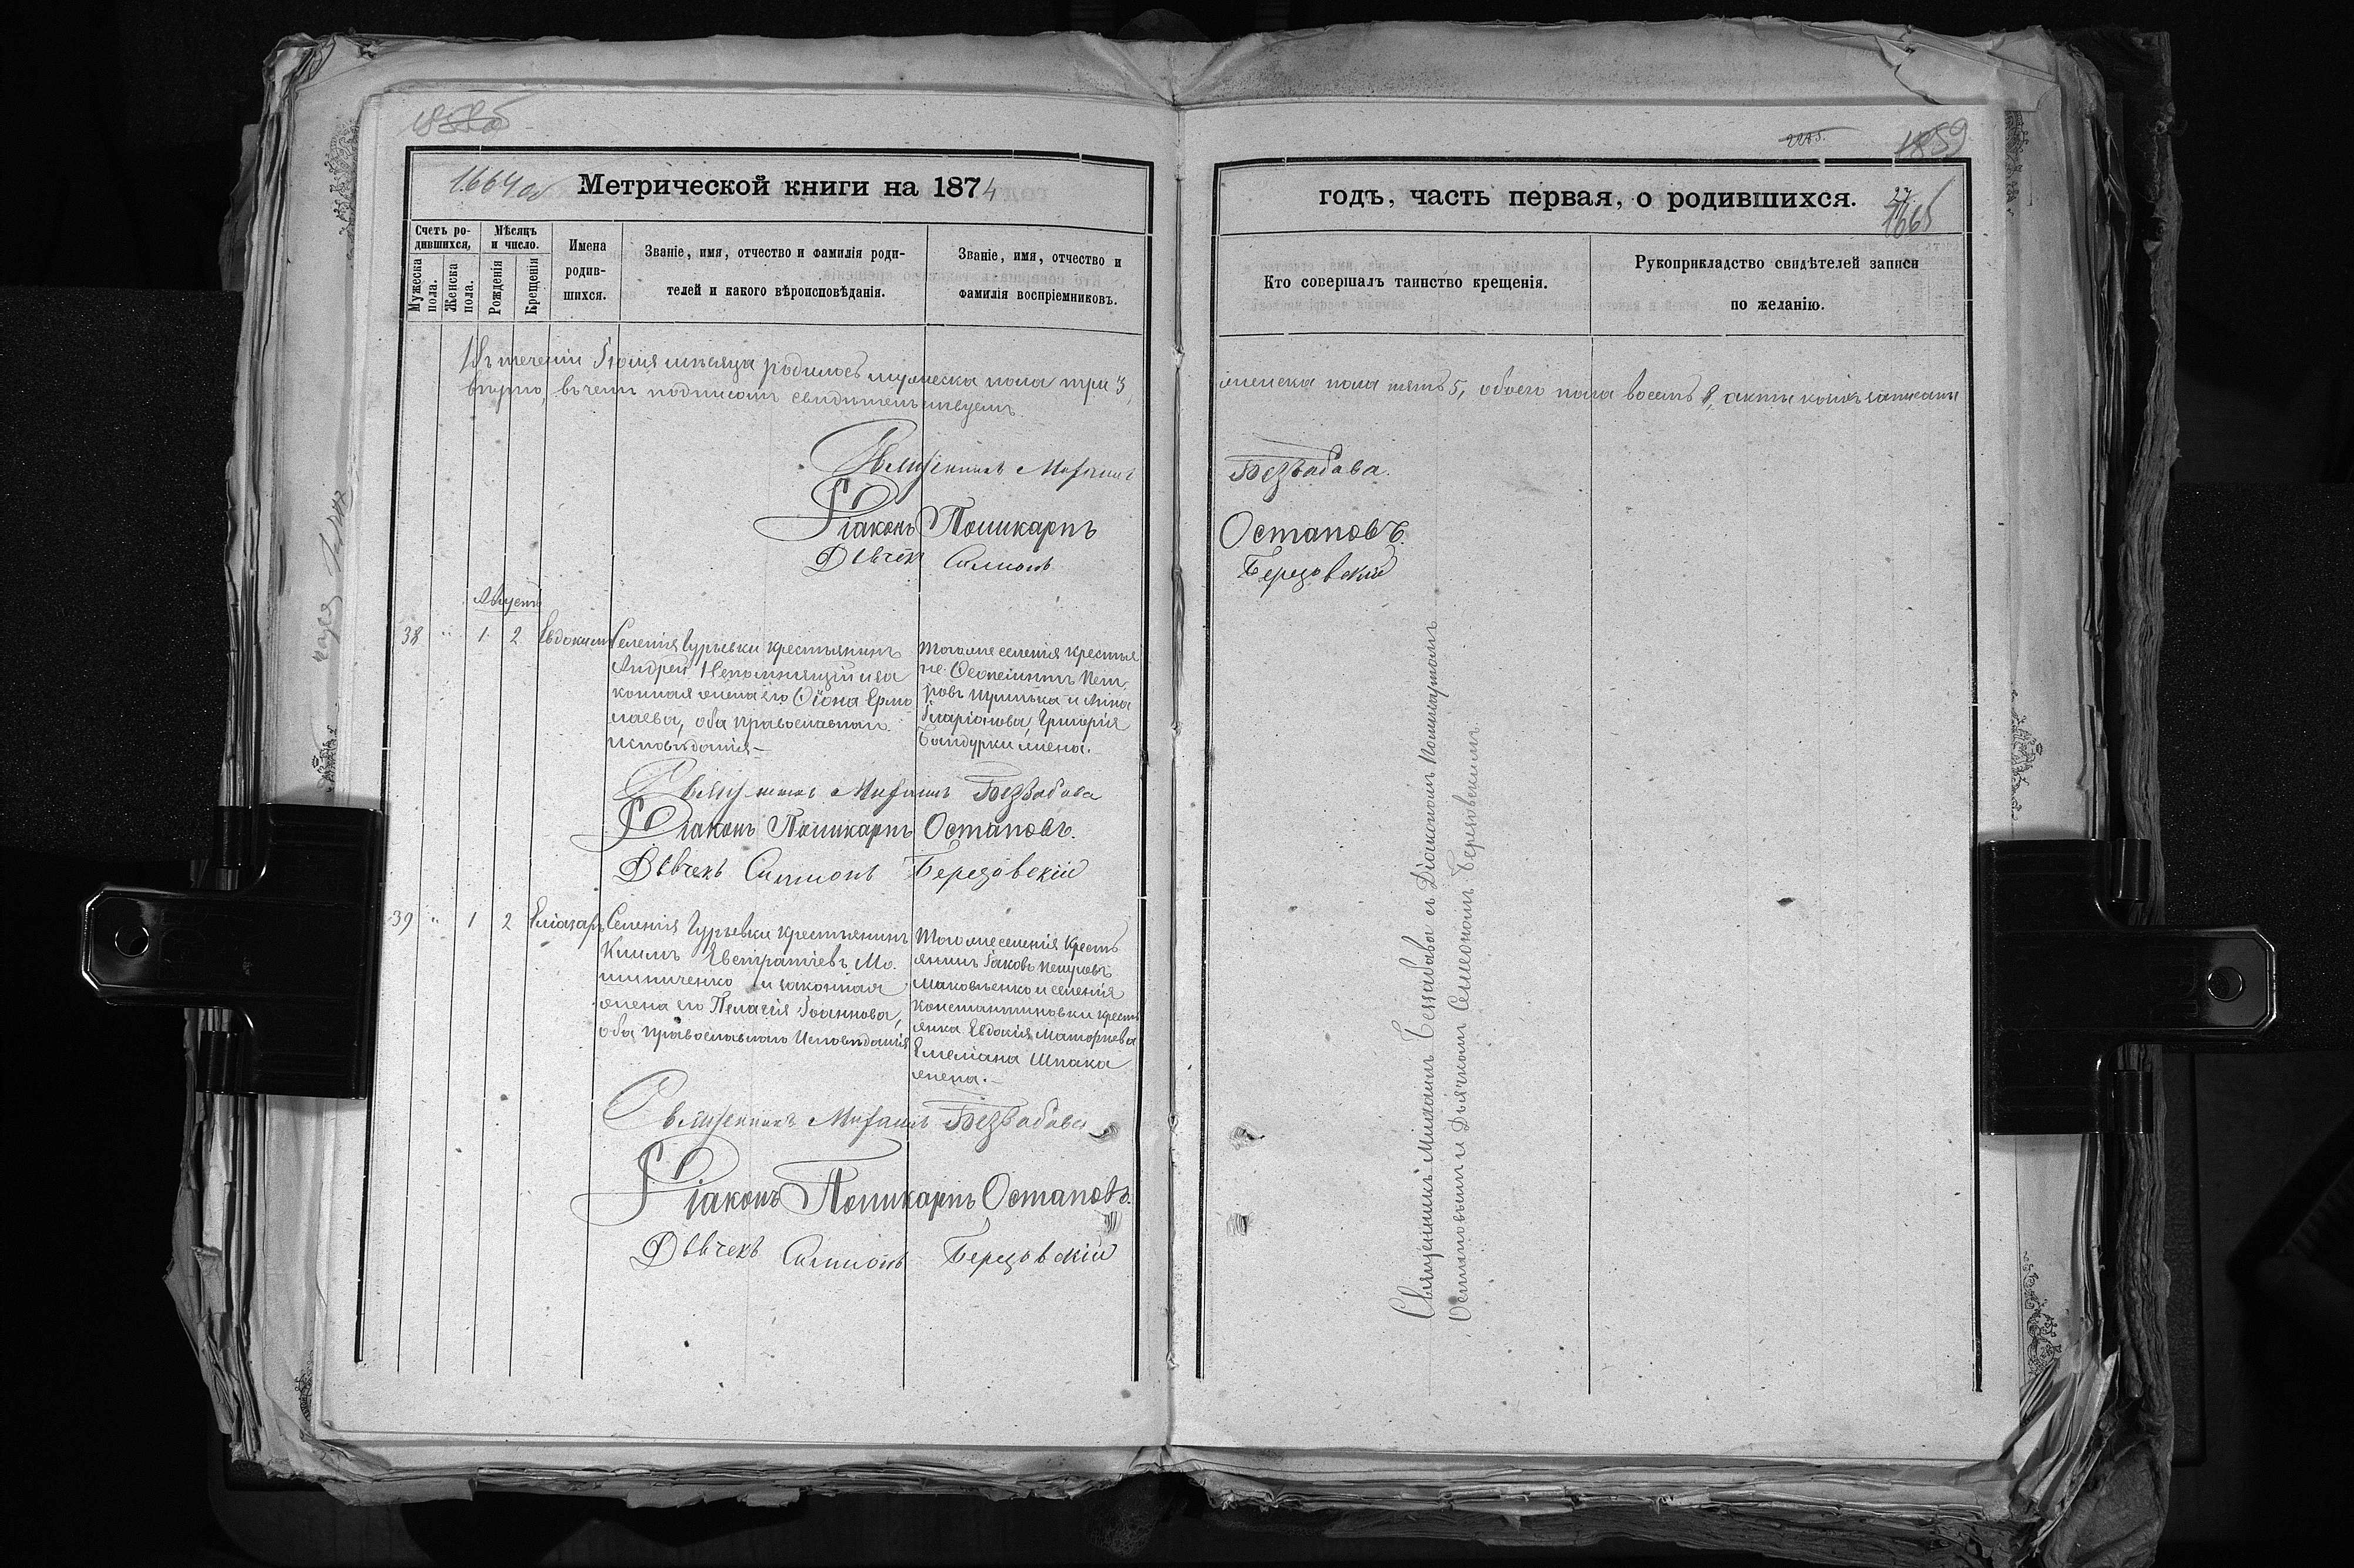 1664об
Метрической книги на 1874
Счетъ ро-
дившихся,
Мужеска
пола.
Женска
пола.
Мѣсяцъ
и число.
Рожденія
Крещенія
Имена
родив-
шихся.
Званіе, имя, отчество и фамилія роди-
телей и какого вѣроисповѣданія.
Званіе, имя, отчество и
фамилія воспріемниковъ.
Въ теченіи Іюля мѣсяца родилось мужеска пола три 3,
вѣрно, въ чемъ подписомъ свидѣтельствуемъ.
Священникъ Михаилъ
Діаконъ Поликарпъ
Дьячекъ Симеонъ
Августъ
38 " 1 2 Евдокимъ
Селенія Гурьевки крестьянинъ
Андрей Непомнящій и за
конная жена его Ѳіона Ермо
лаева, оба православнаго
исповѣданія –
Тогоже селенія крестья
не: Ѳеопемптъ Пет
ровъ и Анна
Иларіонова, Григорія
Бандурки жена.
Священникъ Михаилъ Беззабава
Діаконъ Поликарпъ Остаповъ.
Дьячекъ Симеонъ Березовскій
39 " 1 2 Еліазаръ
Селенія Гурьевки крестьянинъ
Климъ Евстратіевъ Мо
и законная
жена его Пелагія Іоаннова,
оба православнаго Исповѣданія
Тогоже селенія кресть
янинъ Іаковъ Петровъ
Маковѣенко и селенія
Константиновки кресть
янка Евдокія
Емеліана Шпака
жена. –
Священникъ Михаилъ Беззабава
Діаконъ Поликарпъ Остаповъ.
Дьячекъ Симеонъ Березовскій
2225.
1859
годъ, часть первая, о родившихся.
27.
1665
Кто совершалъ таинство крещенія.
Рукоприкладство свидѣтелей записи
по желанію.
женска пола пять 5, обоего пола восемь 8, акты коихъ записаны
Беззабава.
Остаповъ.
Березовскій
Священникъ Михаилъ Беззабава съ Діакономъ Поликарпомъ
Остаповымъ и Дьячкомъ Семеономъ Березовскимъ